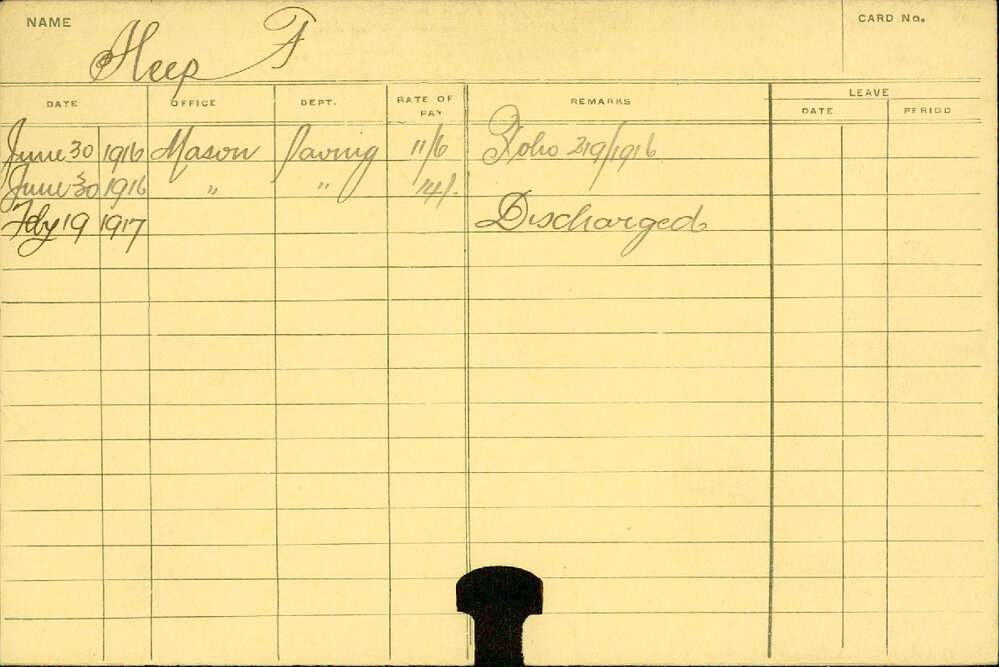 NAME Heep F CARD No.
DATE OFFICE DEPT. RATE OF PAY REMARKS LEAVE
DATE PERIOD
June 30 1916 Mason Paving 11/6 Folio 219/1916
June 30 1916 " " 14/-
Feby 19 1917 Discharged